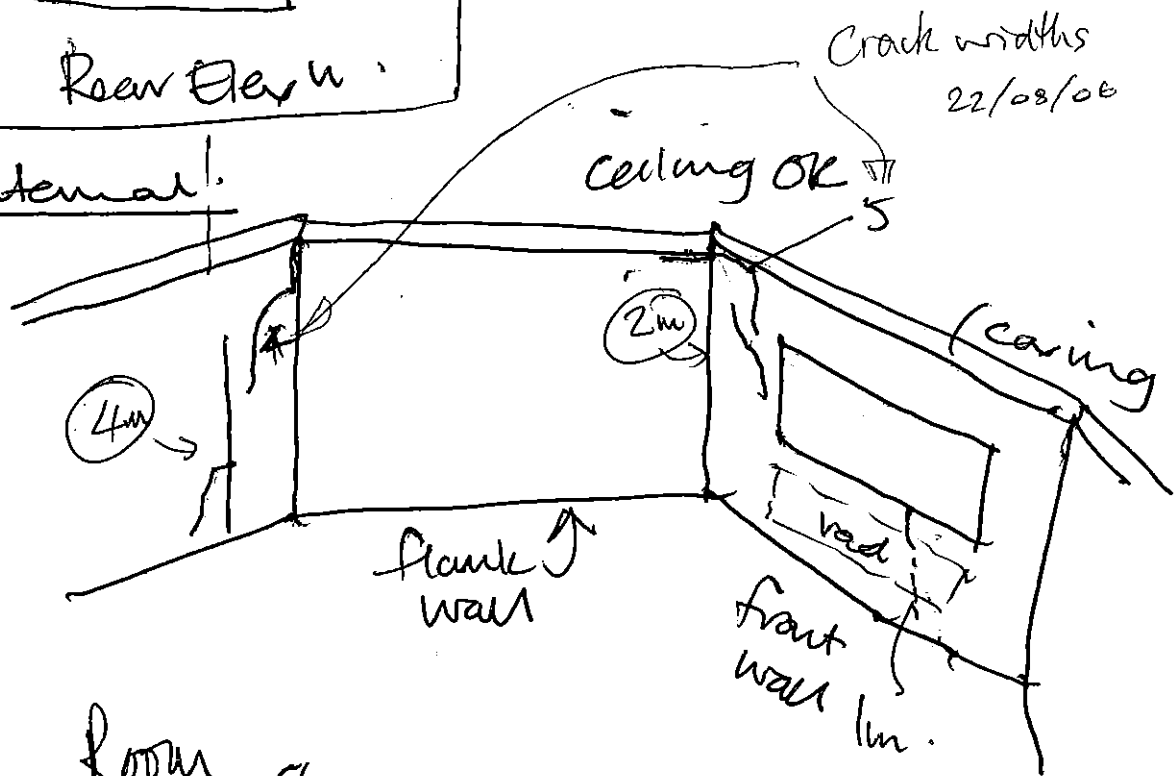 Rear Elev n.
Crack widths
22/08/06
ternal.
ceiling OK
5
2m
coving
4m
rad
flank
wall
front
wall
1m.
Room